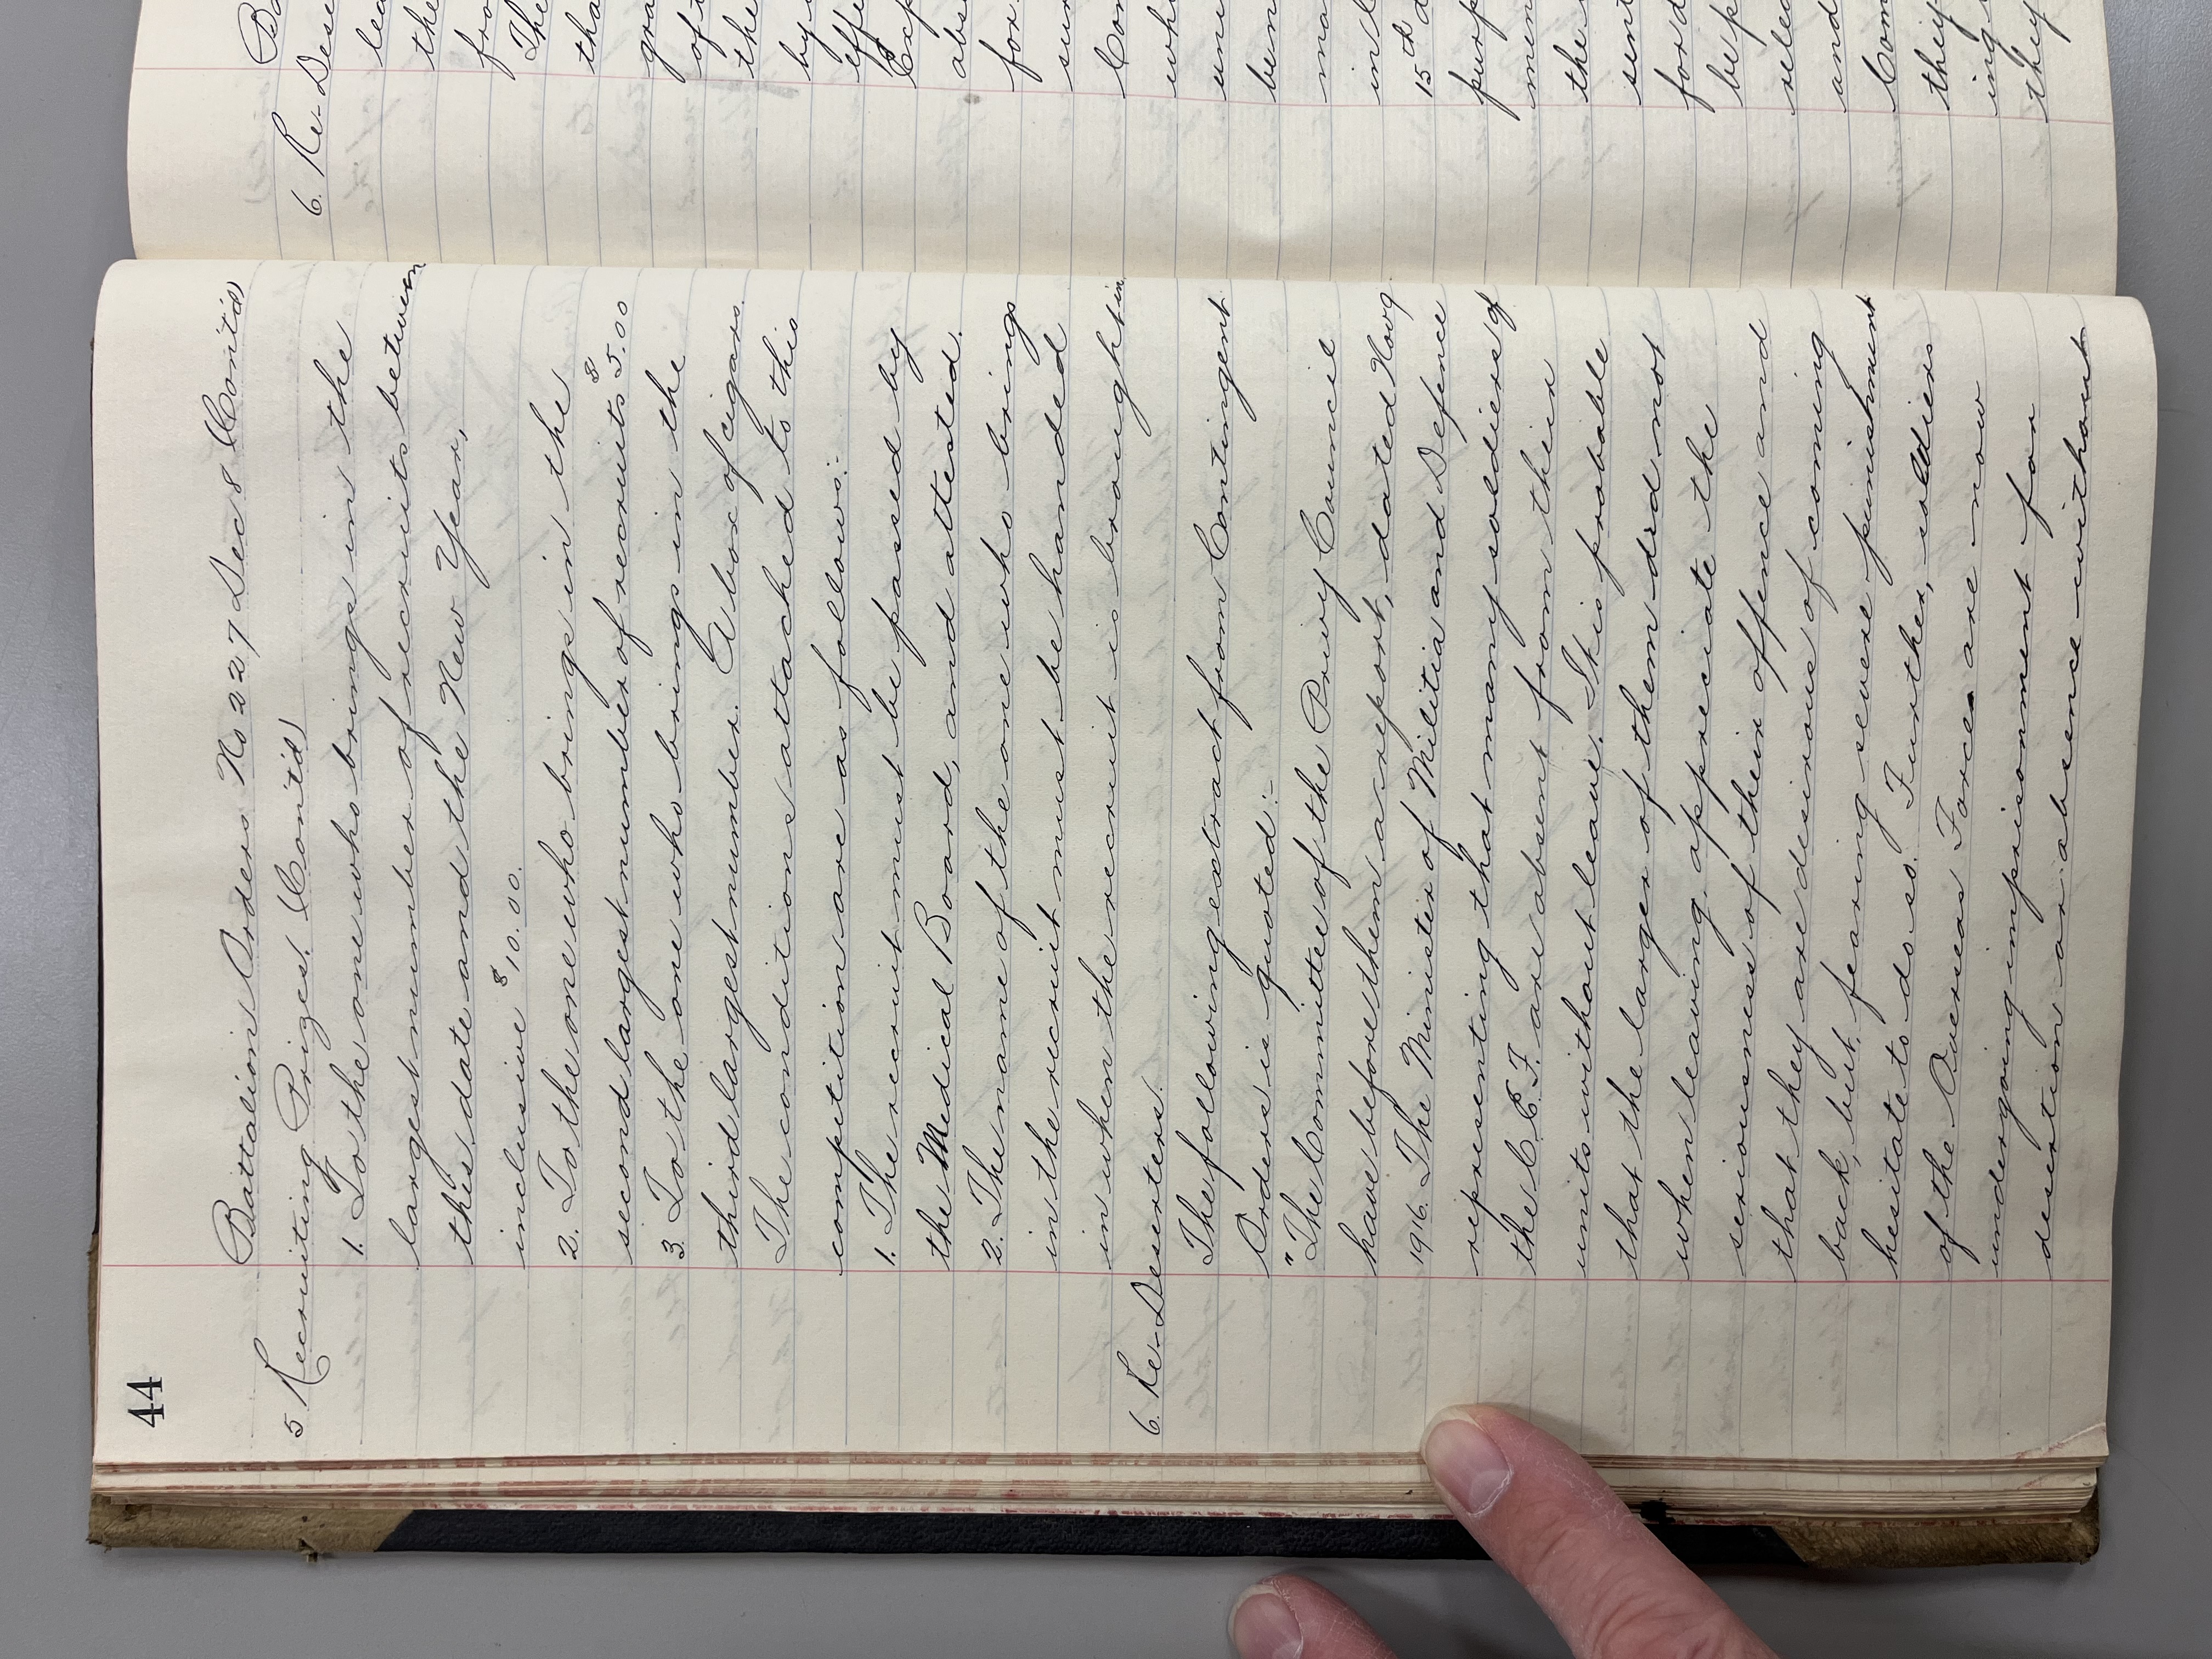 44
Battalion Orders No 227 Dec 8 (Cont'd)
5 Recruiting Prizes. (Cont'd)
1. To the one who brings in the
largest number of recruits between
this date and the New Year,
inclusive $10.00.
2. To the one who brings in the
second largest number of recruits $5.00
3. To the one who brings in the
third largest number. A box of cigars.
The conditions attached to this
competition are as follows:-
1. The recruit must be passed by
the Medical Board, and attested.
2. The name of the one who brings
in the recruit must be handed
in when the recruit is brought in
6. Re-Deserters.
The following extract from Contingent
Orders is quoted:-
"The Committee of the Privy Council
have before them a report, dated Nov 9
1916. The Minister of Militia and Defence
representing that many soldiers of
the C.E.F. are absent from their
units without leave. It is probable
that the larger of them did not
when leaving appreciate the
seriousness of their offence and
that they are desirous of coming
back, but, fearing severe punishment
hesitate to do so. Further, soldiers
of the Overseas Forces are now
undergoing imprisonment for
desertion or absence without
6. Re-Dese
the
fro
The
tha
gra
of t
the
by
for
Con
whi
une
been
ma
15th d
purp
men
the
sent
ford
be p
relea
and
Com
they
ing
they